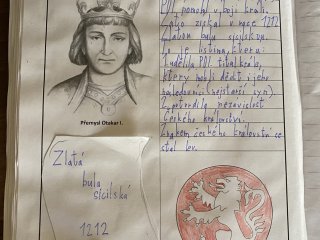 Přemysl Otakar I.
Zlatá
bula
sicilská
1212
POI. pomohl v boji králi.
získal v roce 1212
Zlatou bulu sicilskou.
To je listina, kterou
udělila POI. titul krále,
který mohli dědit i jeho
následovníci (nejstarší syn).
nezávislost
českého království.
Znakem českého království se
stal lev.